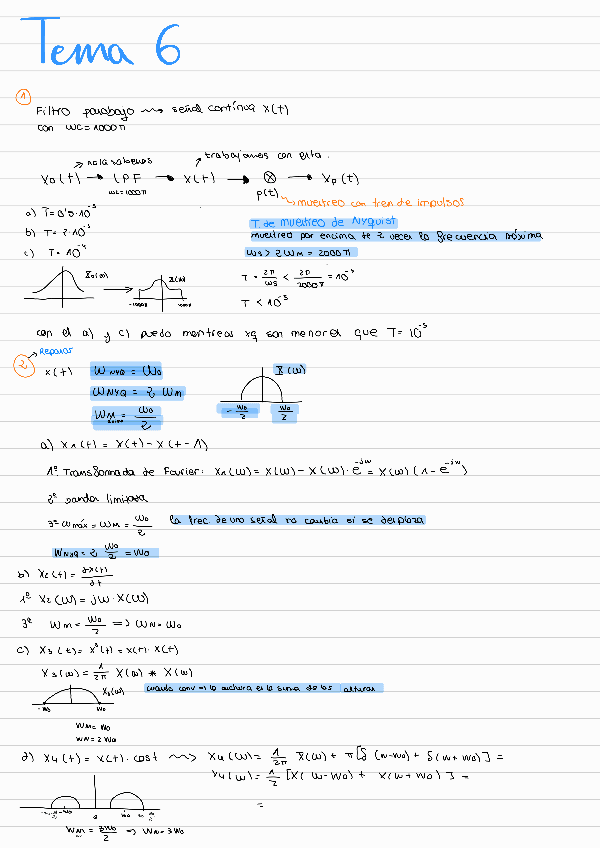 Tema 6
1
Filtro parabajo ⇝ señal contínua x(t)
con ωc = 1000π
→ no la sabemos
→ trabajamos con esta.
X0(t) → LPF → X(t) → ⊗ → Xp(t)
ωc = 1000π
p(t) ↪ muestreo con tren de impulsos
a) T = 0'5·10⁻³
b) T = 2·10⁻³
c) T = 10⁻⁴
T de muestreo de Nyquist
muestreo por encima de 2 veces la frecuencia máxima
ωs > 2ωM = 2000π
X0(ω)
X(ω)
-1000π 1000π
T = 2π/ωs < 2π/2000π = 10⁻³
T < 10⁻³
con el a) y c) puedo mestreas xq son menores que T = 10⁻³
→ Repasar
2
x(t)
ωNYQ = ω0
ωNYQ = 2 ωM
ωM = ω0/2
X(ω)
-ω0/2 ω0/2
a) X1(t) = X(t) - X(t-1)
1º Transformada de Fourier: X1(ω) = X(ω) - X(ω)·e^-jω = X(ω)(1 - e^-jω)
2º banda limitada
3º ωmáx = ωM = ω0/2
la frec. de una señal no cambia si se desplaza
ωNYQ = 2 ω0/2 = ω0
b) X2(t) = dx(t)/dt
1º X2(ω) = jω·X(ω)
3º ωM = ω0/2 => ωN = ω0
c) X3(t) = x²(t) = x(t)·x(t)
X3(ω) = 1/2π X(ω) * X(ω)
X3(ω)
-ω0 ω0
cuando conv => la anchura es la suma de las alturas
ωM = ω0
ωN = 2ω0
d) X4(t) = x(t)·cost ⇝ X4(ω) = 1/2π X(ω) + π[δ(ω-ω0) + δ(ω+ω0)] =
X4(ω) = 1/2 [X(ω-ω0) + X(ω+ω0)] =
=
ωM = 3ω0/2 => ωN = 3ω0